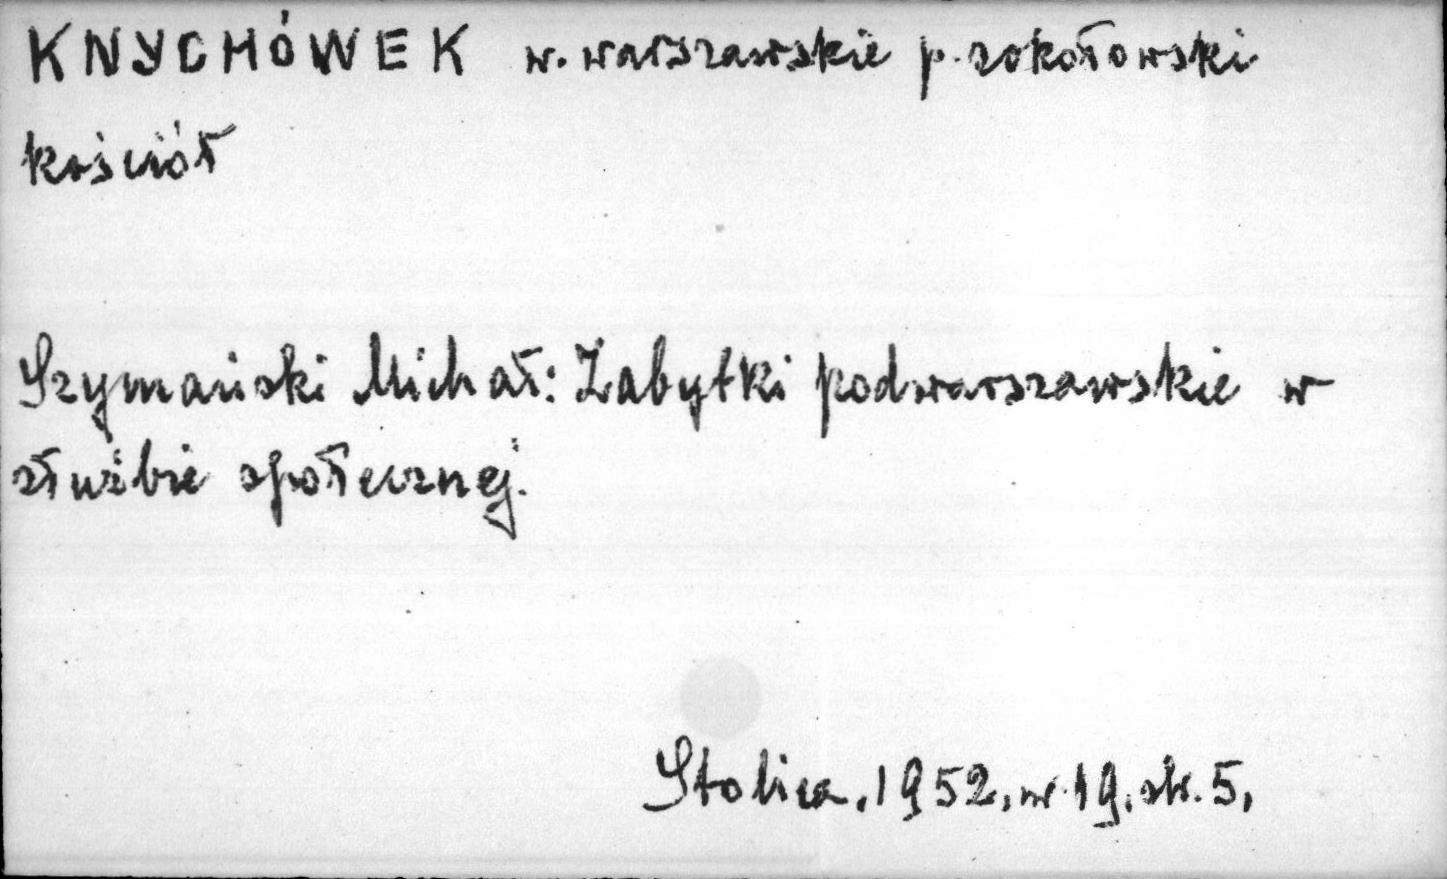 KNYCHÓWEK w. warszawskie p. sokołowski
kościół
Szymański Michał: Zabytki podwarszawskie w
służbie społecznej.
Stolica, 1952, nr. 19, str. 5,